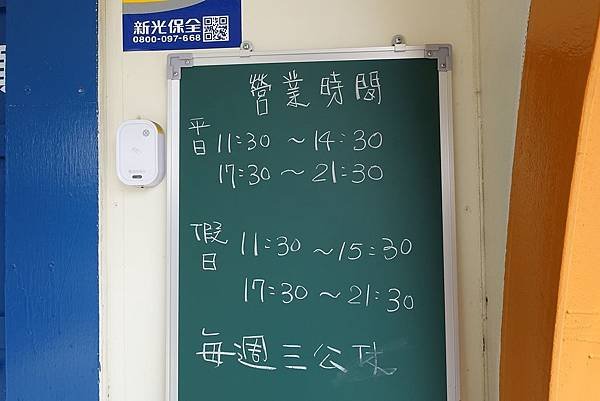 新光保全
0800-097-668
營業時間
平日 11:30 ~ 14:30
17:30 ~ 21:30
假日 11:30 ~ 15:30
17:30 ~ 21:30
每週三公休